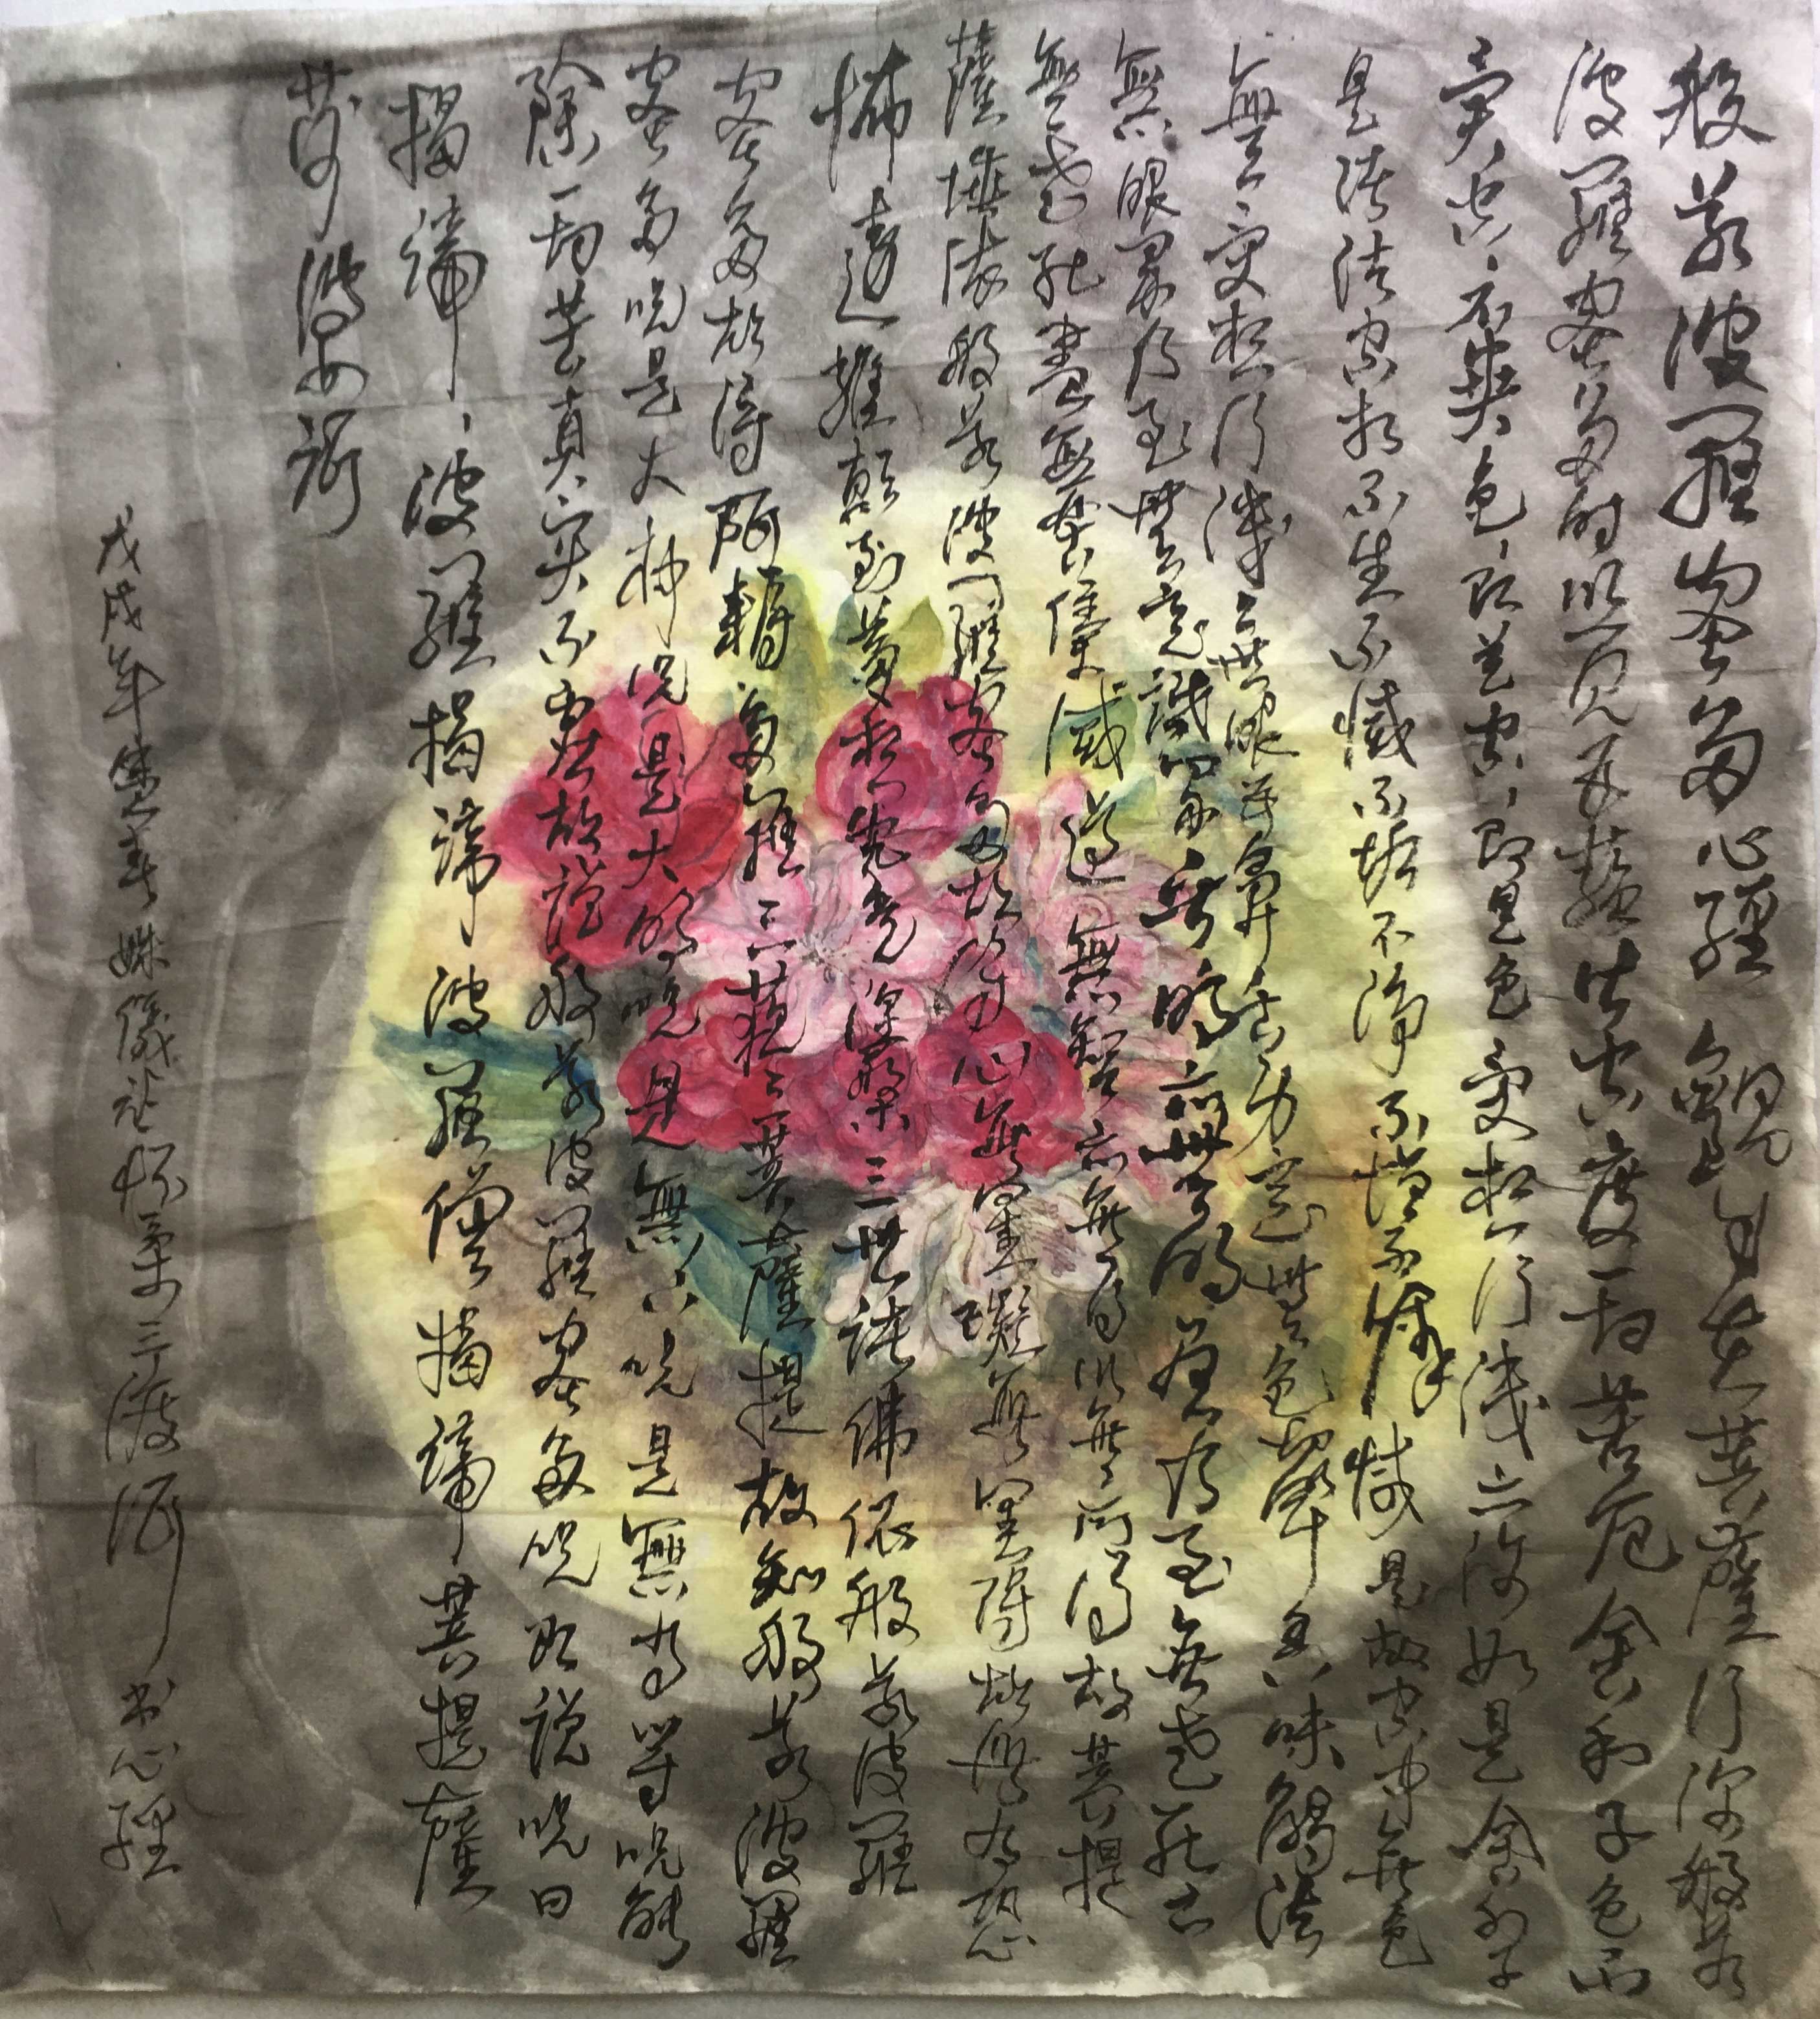 般若波羅蜜多心經 觀自在菩薩行深般若
波羅蜜多時照見五蘊皆空度一切苦厄舍利子色不
異空空不異色色即是空空即是色受想行識亦復如是舍利子
是諸法空相不生不滅不垢不淨不增不減是故空中無色
無受想行識無眼耳鼻舌身意無色聲香味觸法
無眼界乃至無意識界無無明亦無無明盡乃至無老死亦
無老死盡無苦集滅道無智亦無得以無所得故菩提
薩埵依般若波羅蜜多故心無罣礙無罣礙故無有恐
怖遠離顛倒夢想究竟涅槃三世諸佛依般若波羅
蜜多故得阿耨多羅三藐三菩提故知般若波羅
蜜多咒是大神咒是大明咒是無上咒是無等等咒能
除一切苦真實不虛故說般若波羅蜜多咒即說咒曰
揭諦揭諦波羅揭諦波羅僧揭諦菩提薩
婆訶
戊戌年 书心經